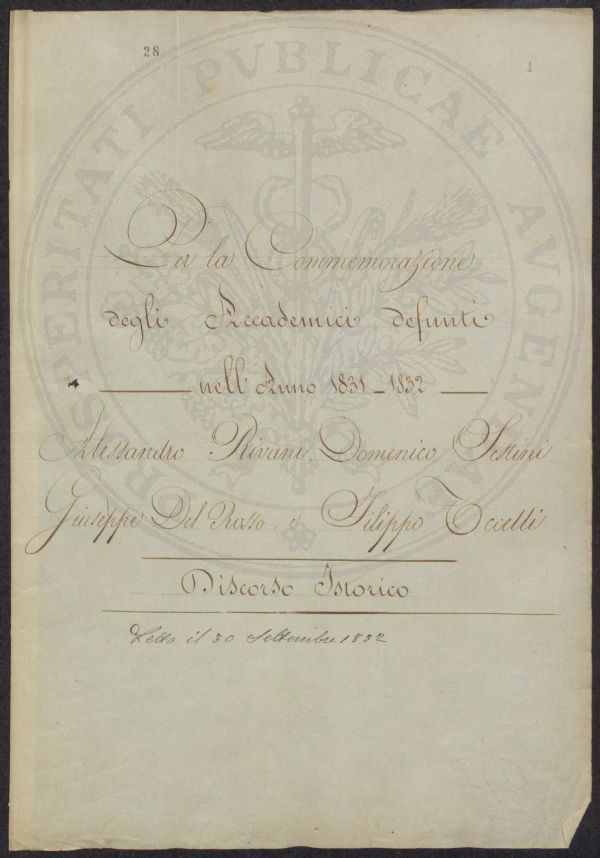 28
1
PROSPERITATI PVBLICAE AVGENDAE
Per la Commemorazione
degli Accademici defunti
nell'Anno 1831-1832
Alessandro Rivani, Domenico Sestini
Giuseppe Del Rosso, e Filippo
Discorso Istorico
Letto il 30 Settembre 1832